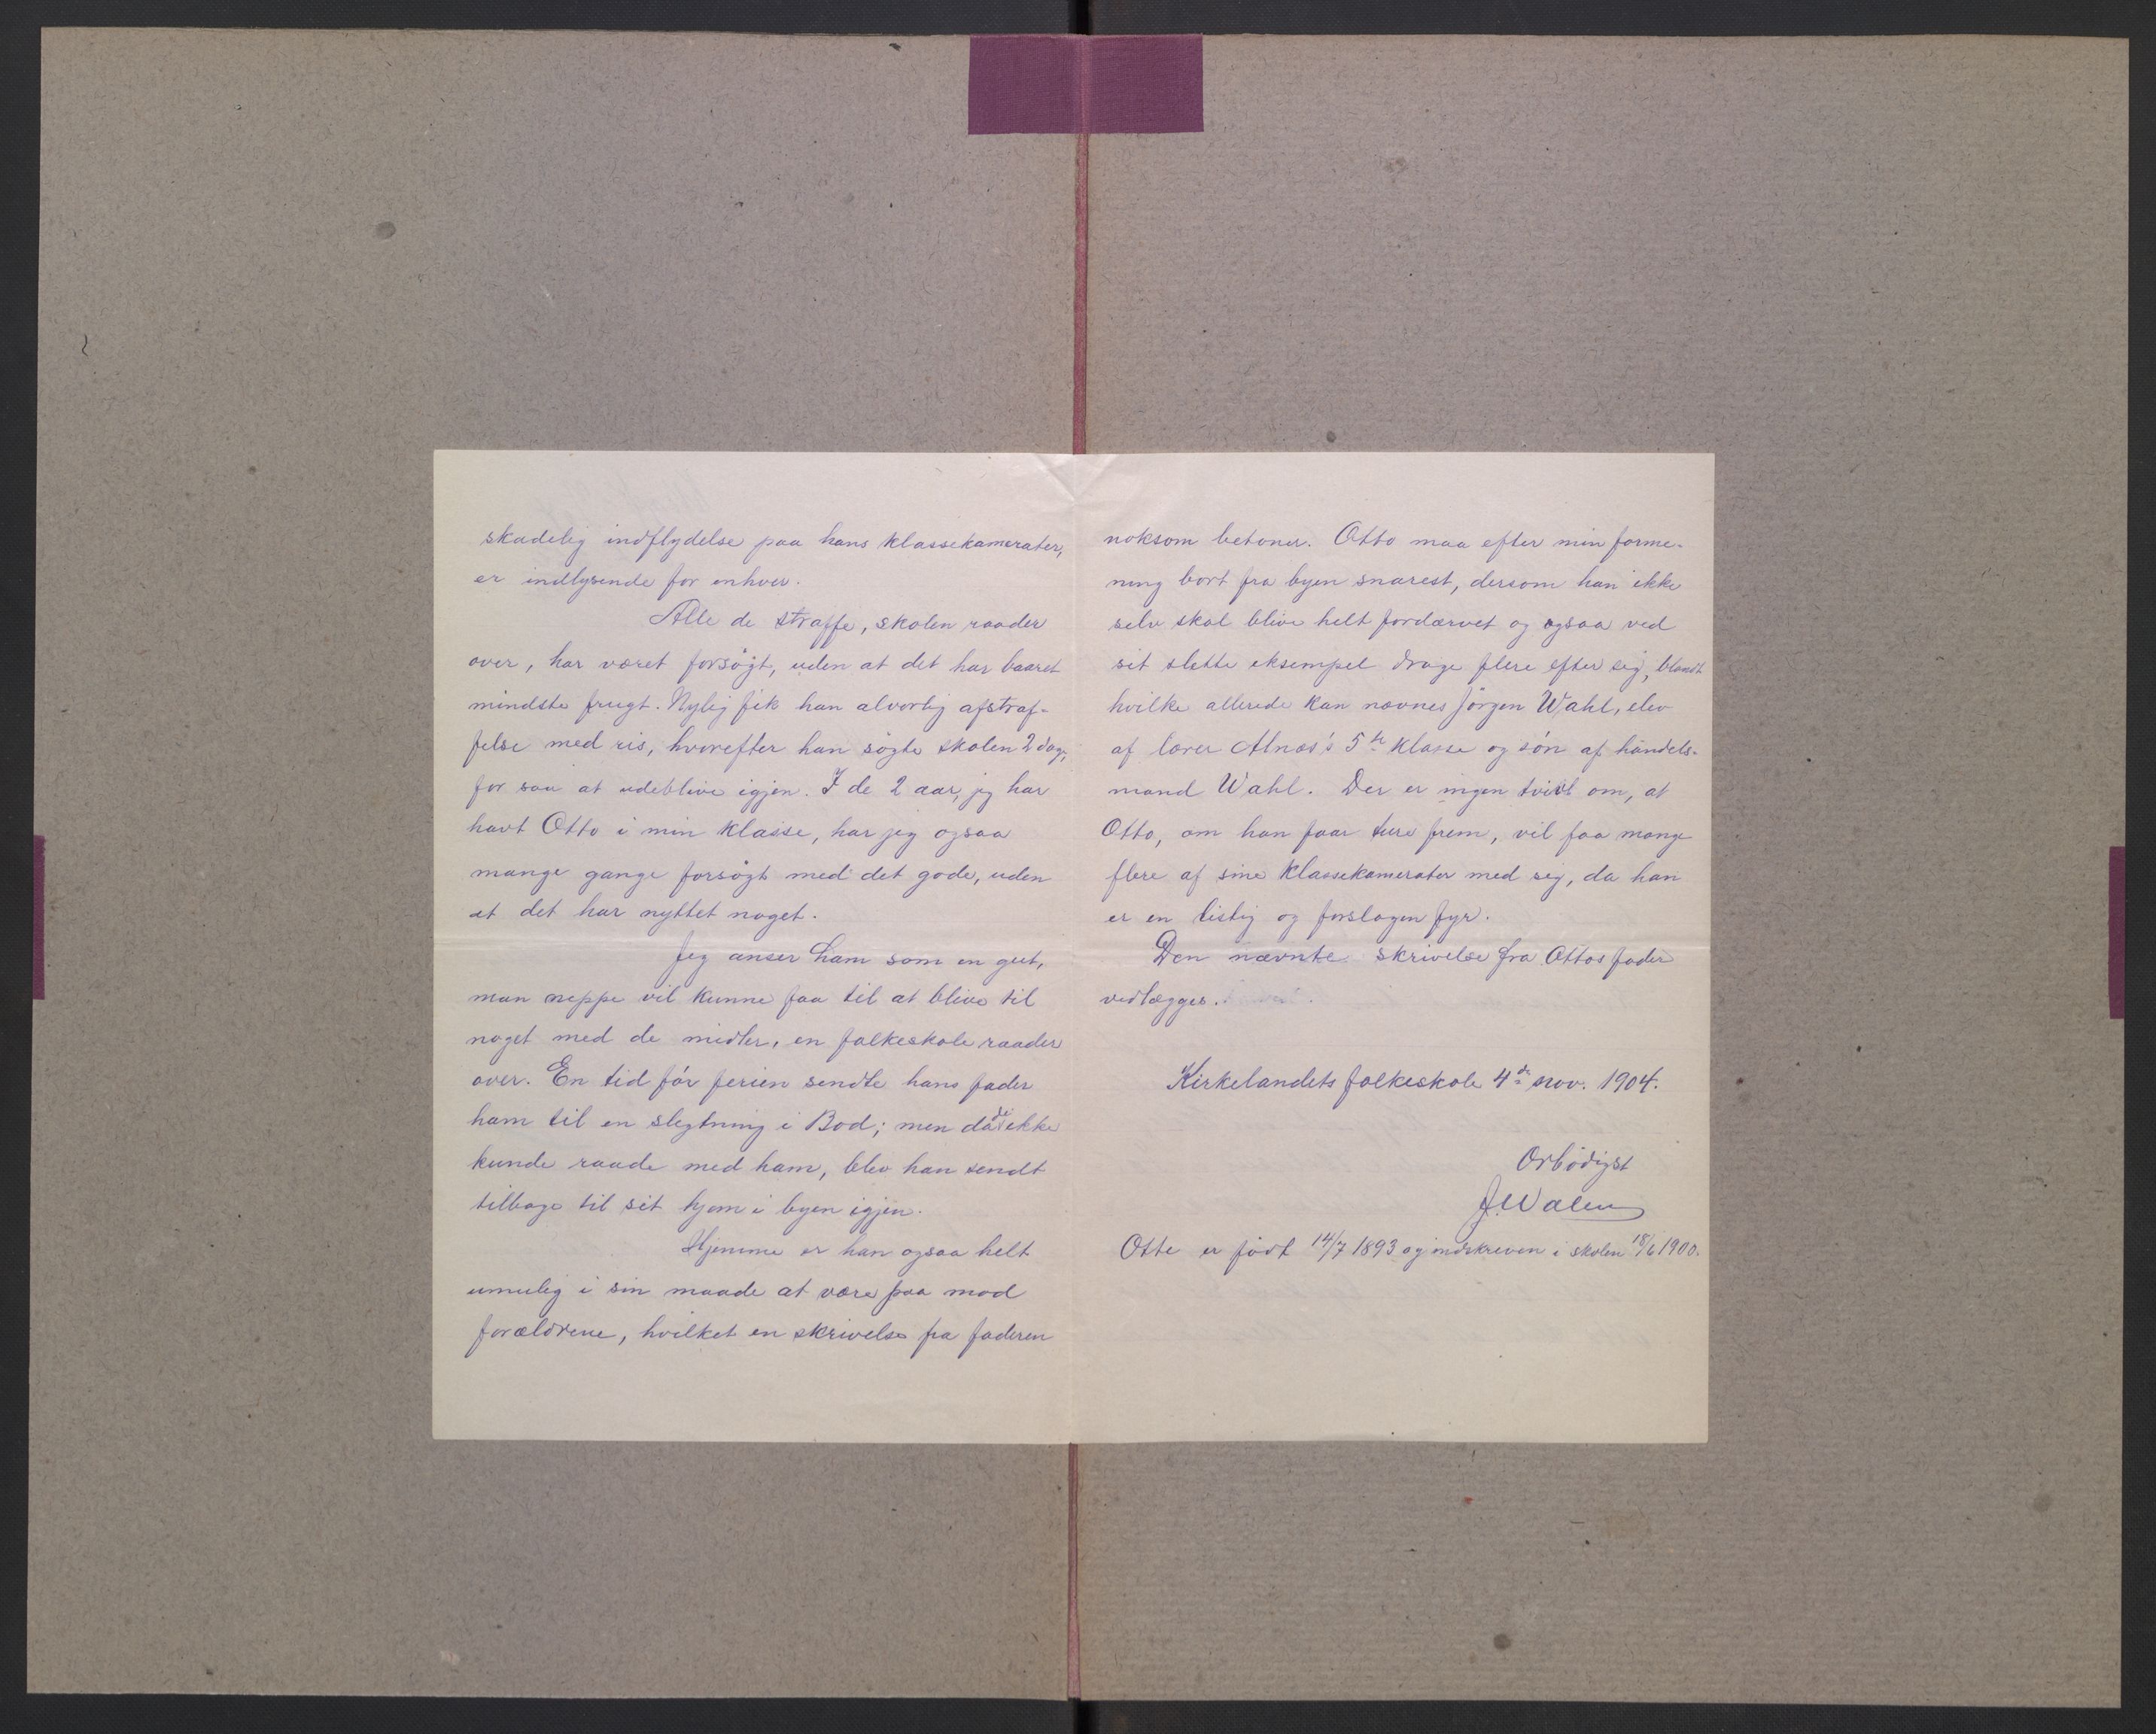 skadelig indflydelse paa hans klassekamerater,
er indlysende for enhver.
Alle de straffe, skolen raader
over, har været forsøgt, uden at det har baaret
mindste frugt. Nylig fik han alvorlig afstraf-
felse med ris, hvorefter han søgte skolen 2 dage,
for saa at udeblive igjen. I de 2 aar, jeg har
havt Otto i min klasse, har jeg ogsaa
mange gange forsøgt med det gode, uden
at det har nyttet noget.
Jeg anser ham som en gut,
man neppe vil kunne faa til at blive til
noget med de midler, en folkeskole raader
over. En tid før ferien sendte hans fader
ham til en slegtning i Bod; men da de ikke
kunde raade med ham, blev han sendt
tilbage til sit hjem i byen igjen.
Hjemme er han ogsaa helt
umulig i sin maade at være paa mod
forældrene, hvilket en skrivelse fra faderen
noksom betoner. Otto maa efter min forme-
ning bort fra byen snarest, dersom han ikke
selv skal blive helt fordærvet og ogsaa ved
sit slette eksempel drage flere efter sig, blandt
hvilke allerede kan nævnes Jørgen Wahl, elev
af lærer Alnæs's 5te klasse og søn af handels-
mand Wahl. Der er ingen tvivl om, at
Otto, om han faar ture frem, vil faa mange
flere af sine klassekamerater med sig, da han
er en listig og forslagen fyr.
Den nævnte skrivelse fra Ottos fader
vedlægges.
Kirkelandets folkeskole 4de nov. 1904.
Ørbødigst
J. Walen
Otto er født 14/7 1893 og indskreven i skolen 18/6 1900.